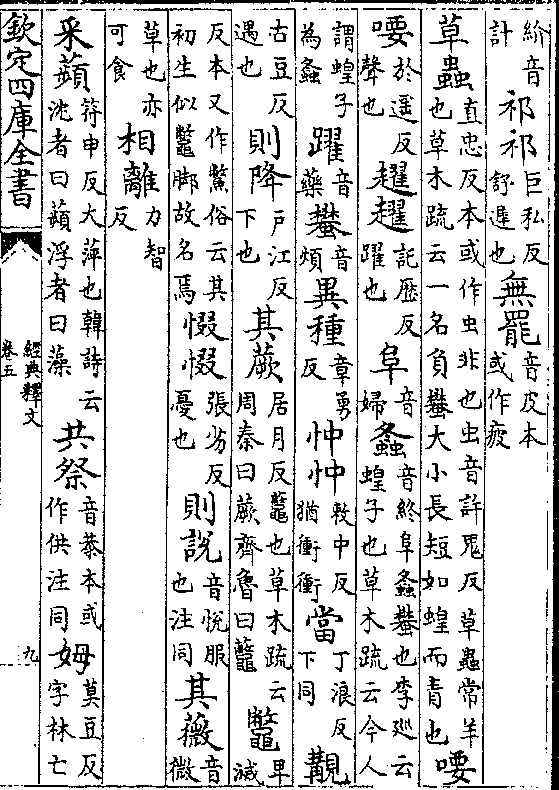 紒音計祁祁巨私反舒遲也無罷音皮本或作疲
草蟲直忠反本或作虫非也虫音許鬼反草蟲常羊也草木疏云一名負蠜大小長短如蝗而青也喓
喓於遥反聲也趯趯託歷反躍也阜音婦螽音終阜螽蠜也李廵云蝗子也草木疏云今人
謂蝗子為螽躍音藥蠜音煩異種章勇反忡忡敕中反猶衝衝當丁浪反下同覯
古豆反遇也則降戶江反下也其蕨居月反虌也草木疏云周秦曰蕨齊魯曰虌鼈卑滅
反本又作鱉俗云其初生似鼈脚故名焉惙惙張劣反憂也則說音悅服也注同其薇音微
草也亦可食相離力智反
采蘋符申反大萍也韓詩云沈者曰蘋浮者曰藻共祭音恭本或作供注同姆莫豆反字林亡
欽定四庫全書
經典釋文
卷五
九